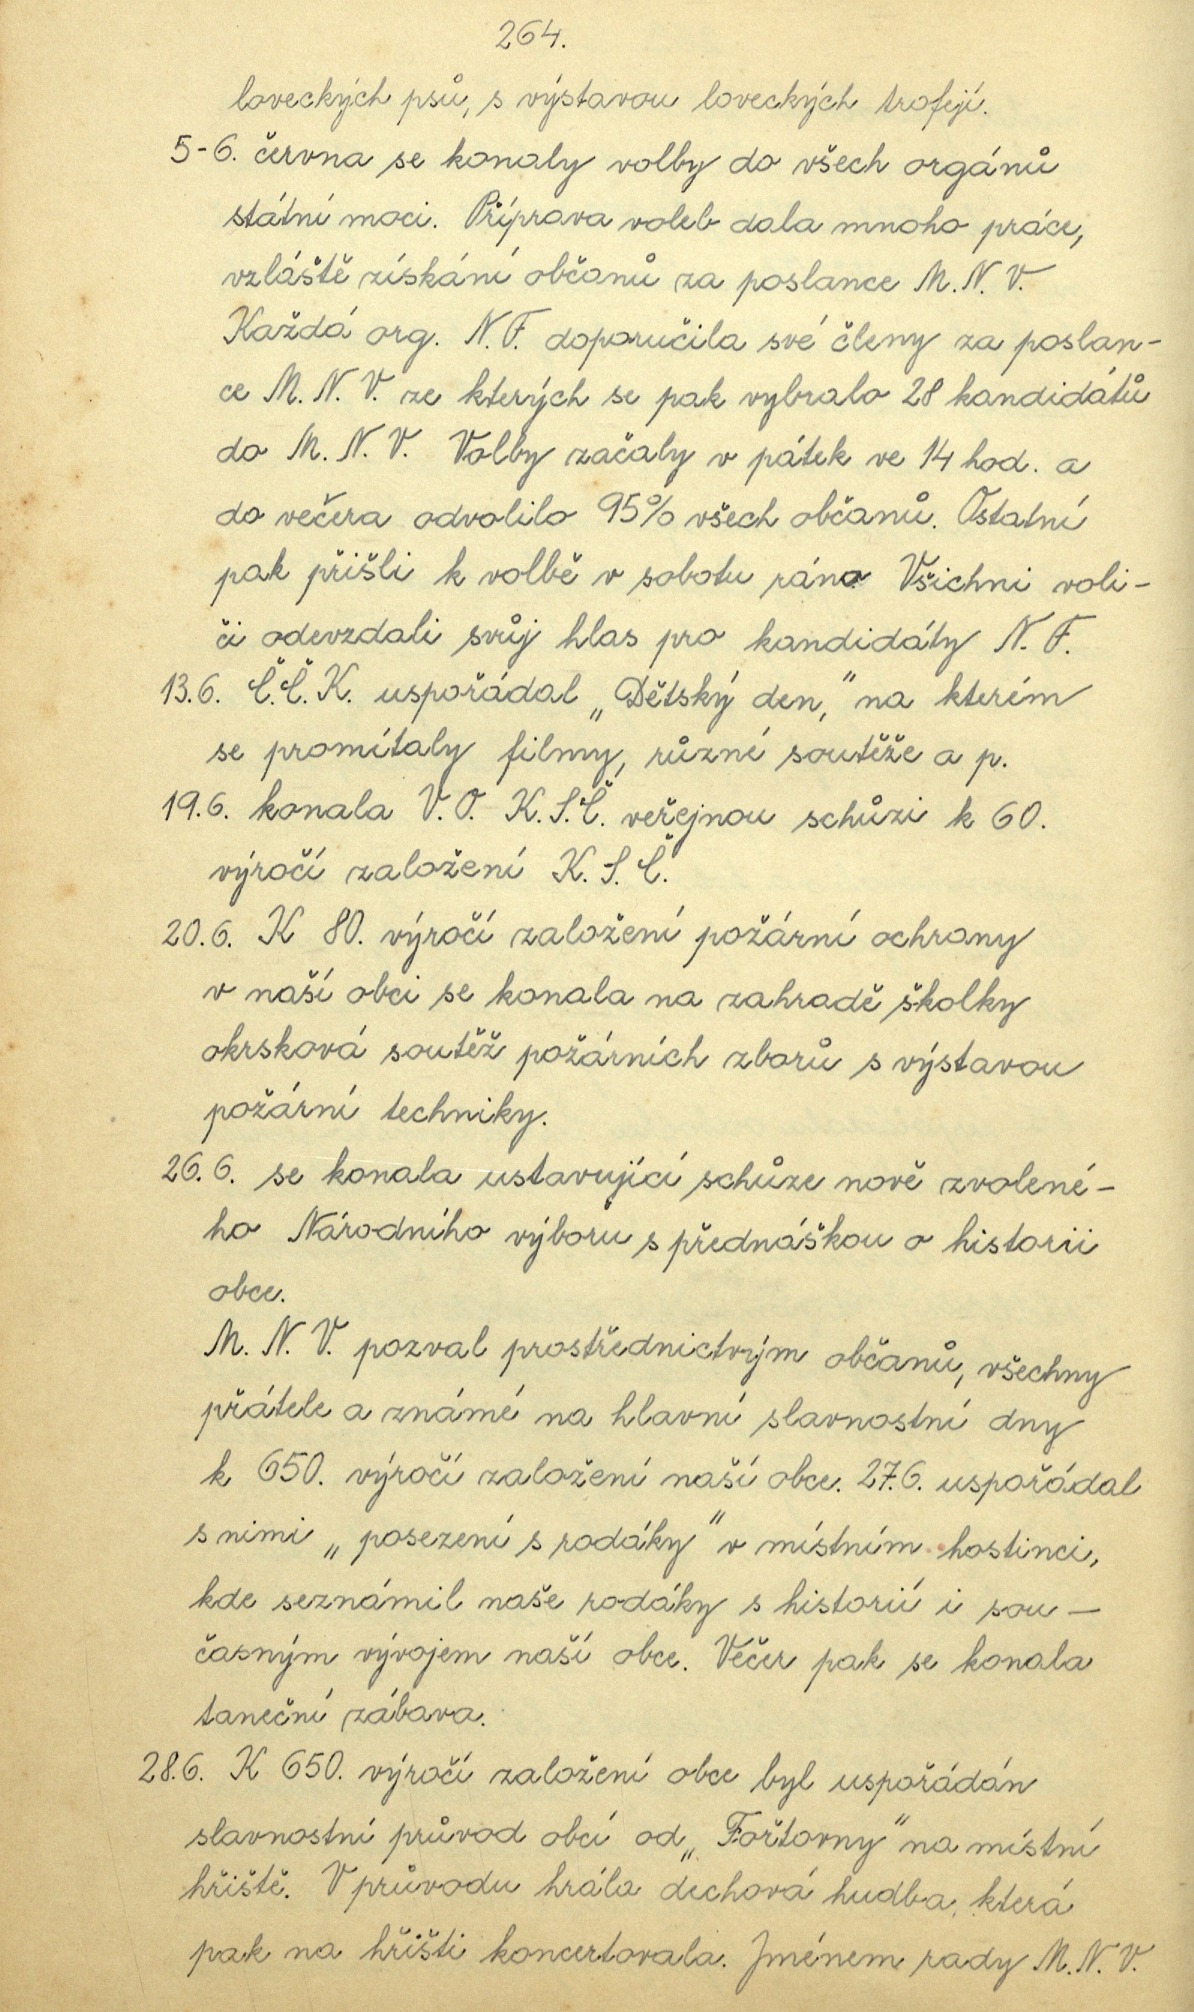 264.
loveckých psů, s výstavou loveckých trofejí.
5-6. června se konaly volby do všech orgánů
státní moci. Příprava voleb dala mnoho práce,
vzláště získání občanů za poslance M.N.V.
Každá org. N.F. doporučila své členy za poslan-
ce M.N.V. ze kterých se pak vybralo 28 kandidátů
do M.N.V. Volby začaly v pátek ve 14 hod. a
do večera odvolilo 95% všech občanů. Ostatní
pak přišli k volbě v sobotu ráno Všichni voli-
či odevzdali svůj hlas pro kandidáty N.F.
13.6. Č.Č.K. uspořádal „Dětský den," na kterém
se promítaly filmy, různé soutěže a p.
19.6. konala V.O. K.S.Č. veřejnou schůzi k 60.
výročí založení K.S.Č.
20.6. K 80. výročí založení požární ochrany
v naší obci se konala na zahradě školky
okrsková soutěž požárních zborů s výstavou
požární techniky.
26.6. se konala ustavující schůze nově zvolené-
ho Národního výboru s přednáškou o historii
obce.
M.N.V. pozval prostřednictvým občanů, všechny
přátele a známé na hlavní slavnostní dny
k 650. výročí založení naší obce. 27.6. uspořádal
s nimi „posezení s rodáky" v místním hostinci,
kde seznámil naše rodáky s historií i sou-
časným vývojem naší obce. Večer pak se konala
taneční zábava.
28.6. K 650. výročí založení obce byl uspořádán
slavnostní průvod obcí od „Fořtovny" na místní
hřiště. V průvodu hrála dechová hudba, která
pak na hřišti koncertovala. Jménem rady M.N.V.